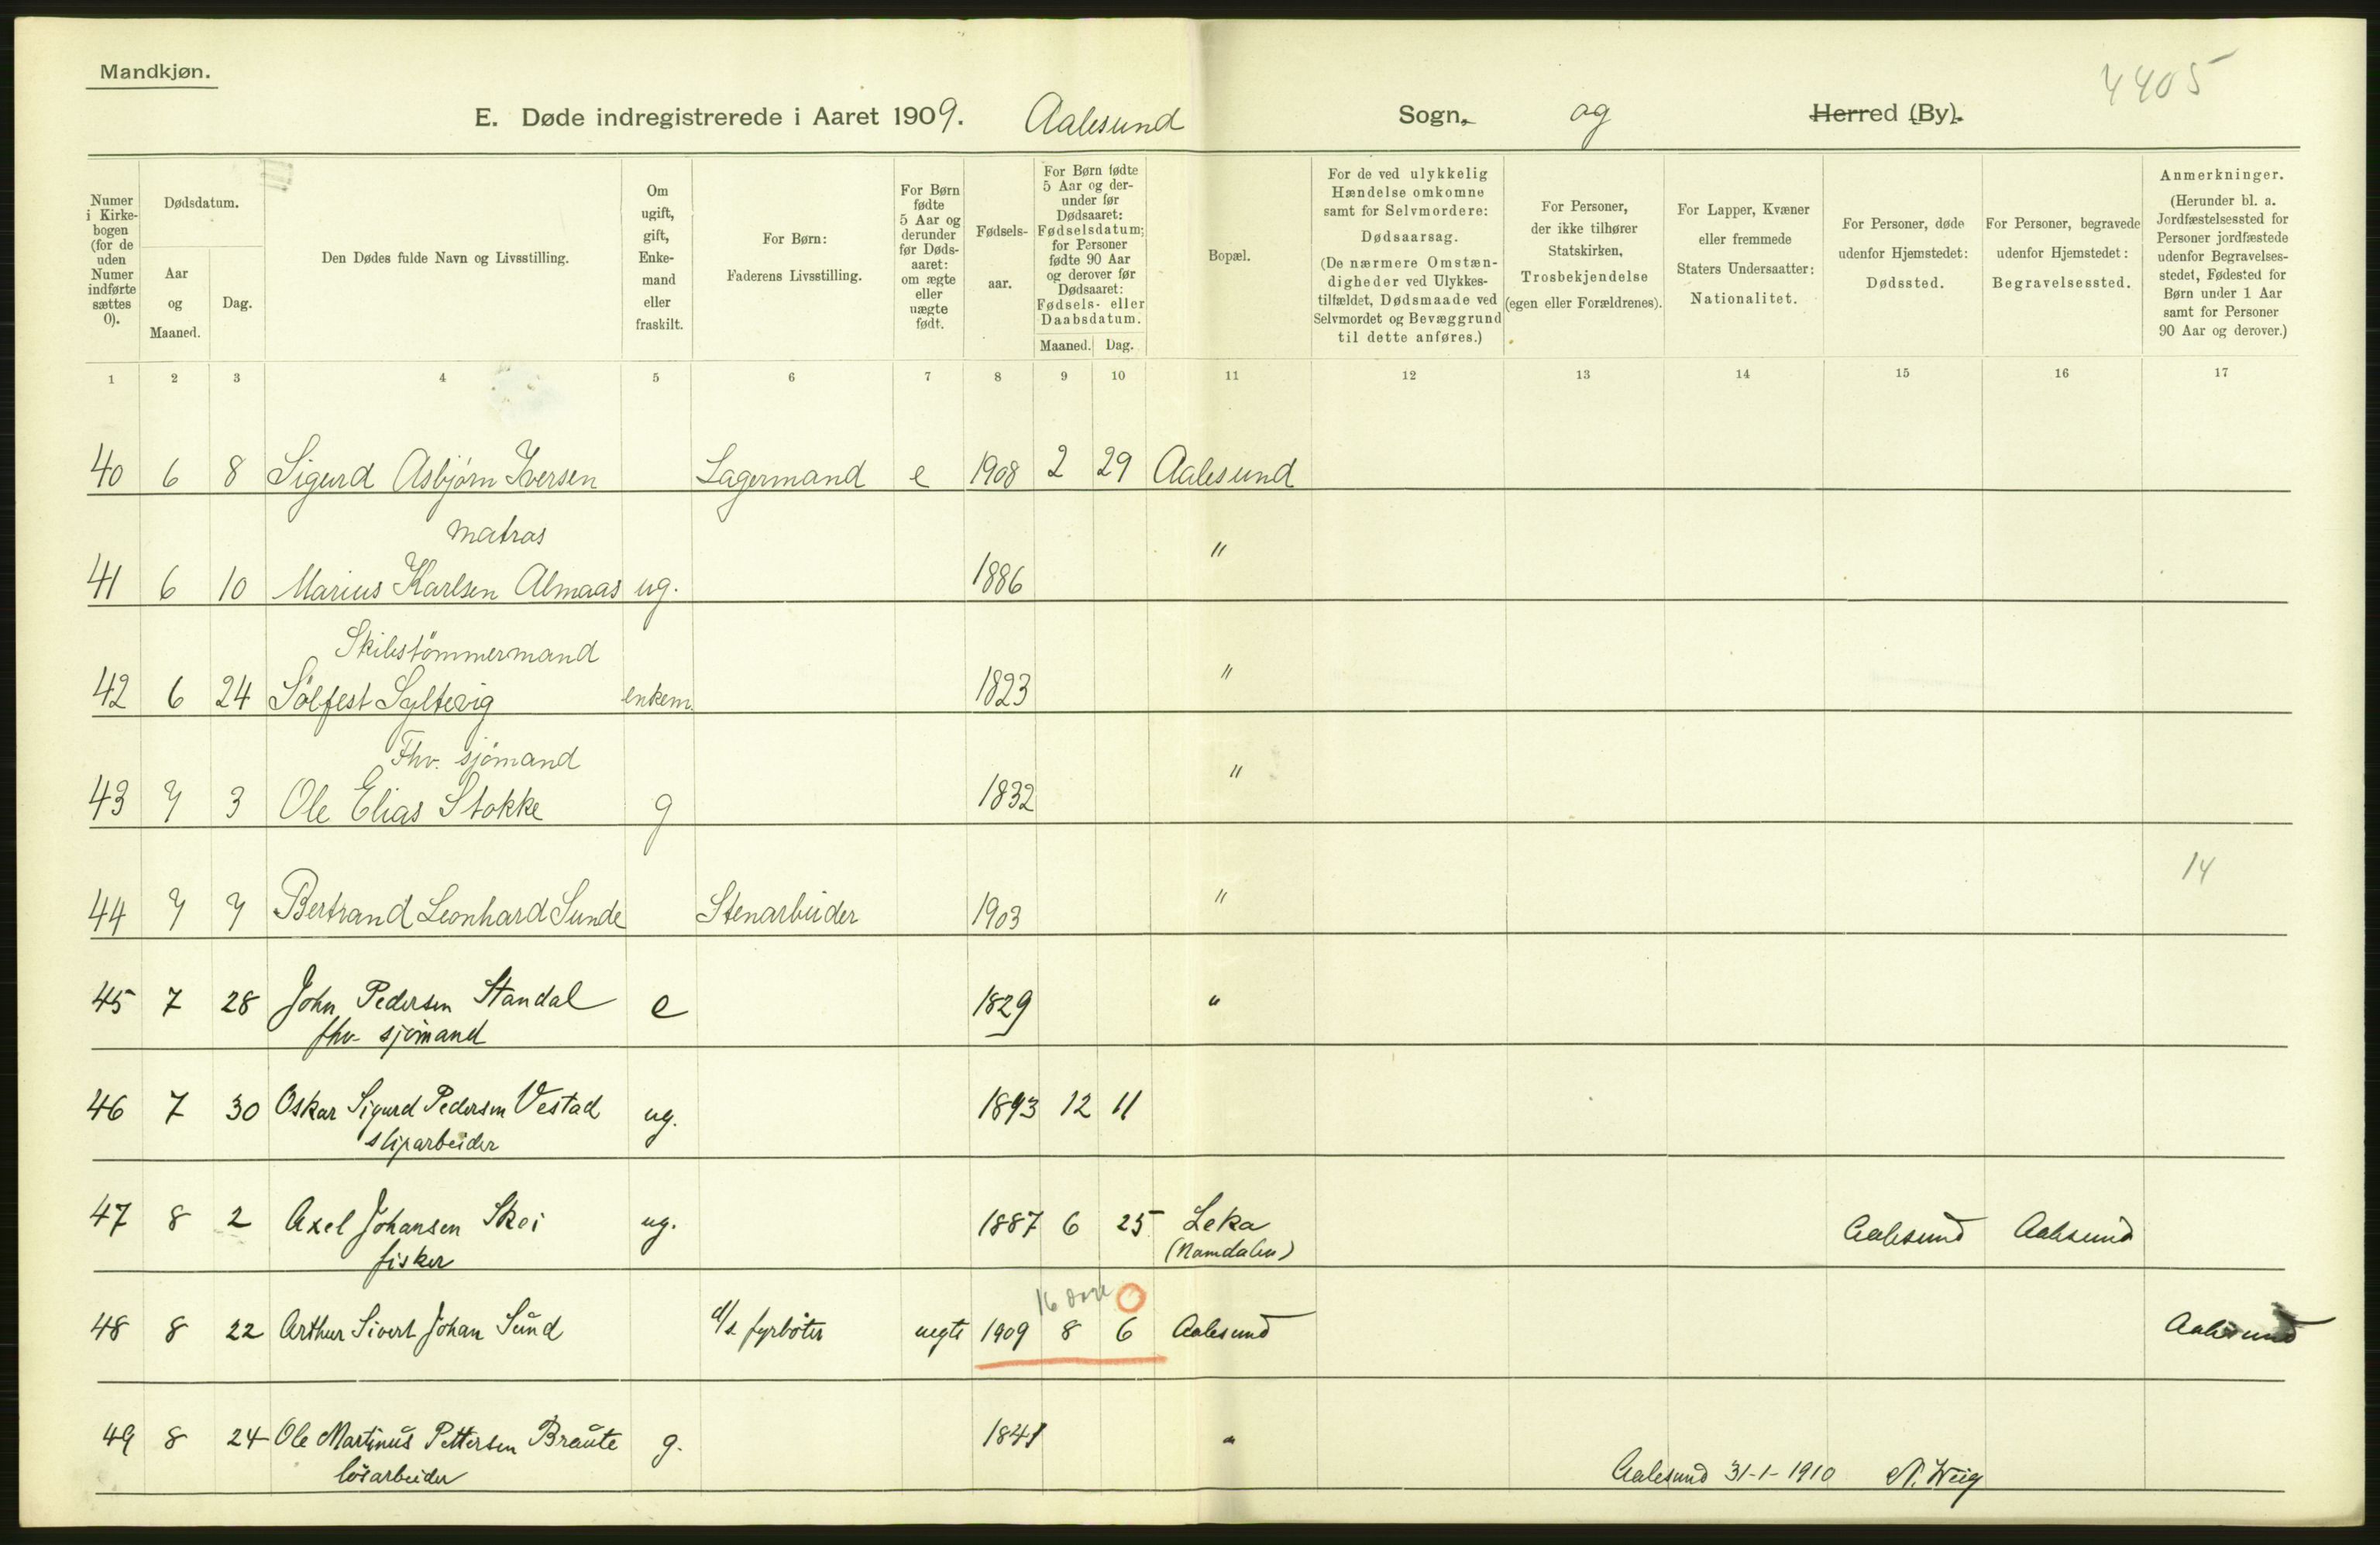 Mandkjøn.
4405
E. Døde indregistrerede i Aaret 1909. Aalesund Sogn. og Herred (By).
Numer i Kirkebogen (for de uden Numer indførte sættes 0).
Dødsdatum.
Aar og Maaned.
Dag.
Den Dødes fulde Navn og Livsstilling.
Om ugift, gift, Enkemand eller fraskilt.
For Børn: Faderens Livsstilling.
For Børn fødte 5 Aar og derunder før Dødsaaret: om ægte eller uægte født.
Fødselsaar.
For Børn fødte 5 Aar og derunder før Dødsaaret: Fødselsdatum; for Personer fødte 90 Aar og derover før Dødsaaret: Fødsels- eller Daabsdatum.
Maaned. Dag.
Bopæl.
For de ved ulykkelig Hændelse omkomne samt for Selvmordere: Dødsaarsag. (De nærmere Omstændigheder ved Ulykkestilfældet, Dødsmaade ved Selvmordet og Bevæggrund til dette anføres.)
For Personer, der ikke tilhører Statskirken, Trosbekjendelse (egen eller Forældrenes).
For Lapper, Kvæner eller fremmede Staters Undersaatter: Nationalitet.
For Personer, døde udenfor Hjemstedet: Dødssted.
For Personer, begravede udenfor Hjemstedet: Begravelsessted.
Anmerkninger. (Herunder bl. a. Jordfæstelsessted for Personer jordfæstede udenfor Begravelsesstedet, Fødested for Børn under 1 Aar samt for Personer 90 Aar og derover.)
1 2 3 4 5 6 7 8 9 10 11 12 13 14 15 16 17
40 6 8 Sigurd Asbjørn Iversen Lagermand e 1908 2 29 Aalesund
Matros
41 6 10 Marius Karlsen Almaas ug. 1886 "
Skibstömmermand
42 6 24 Sölfest Syltevig enkem. 1823 "
Fhv. sjömand
43 7 3 Ole Elias Stokke g 1832 "
14
44 7 7 Bertrand Leonhard Sunde Stenarbeider 1903 "
45 7 28 John Pedersen Standal e 1829 "
fhv. sjømand
46 7 30 Oskar Sigurd Pedersen Vestad ug. 1893 12 11
sliparbeider
47 8 2 Axel Johansen Skei ug. 1887 6 25 Leka Aalesund Aalesund
fisker (Namdalen)
16
48 8 22 Arthur Sivert Johan Sund d/s fyrbøter uegte 1909 8 6 Aalesund Aalesund
49 8 24 Ole Martinus Pettersen Braute g. 1841 "
løsarbeider
Aalesund 31-1-1910 N. Wiig